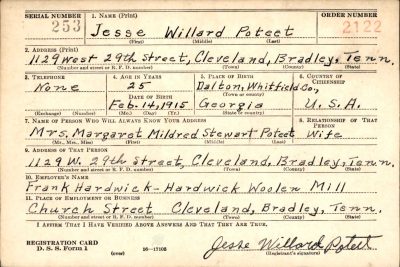 SERIAL NUMBER 1. NAME (Print) ORDER NUMBER
253 Jesse Willard Poteet 2122
(First) (Middle) (Last)
2. ADDRESS (Print)
1129 West 29th Street, Cleveland, Bradley, Tenn.
(Number and street or R. F. D. number) (Town) (County) (State)
3. TELEPHONE 4. AGE IN YEARS 5. PLACE OF BIRTH 6. COUNTRY OF CITIZENSHIP
None 25 Dalton, Whitfield Co.,
(Town or county)
DATE OF BIRTH
Feb. 14, 1915 Georgia U. S. A.
(Exchange) (Number) (Mo.) (Day) (Yr.) (State or country)
7. NAME OF PERSON WHO WILL ALWAYS KNOW YOUR ADDRESS 8. RELATIONSHIP OF THAT PERSON
Mrs. Margaret Mildred Stewart Poteet Wife
(Mr., Mrs., Miss) (First) (Middle) (Last)
9. ADDRESS OF THAT PERSON
1129 W. 29th Street, Cleveland, Bradley, Tenn.
(Number and street or R. F. D. number) (Town) (County) (State)
10. EMPLOYER'S NAME
Frank Hardwick - Hardwick Woolen Mill
11. PLACE OF EMPLOYMENT OR BUSINESS
Church Street Cleveland, Bradley, Tenn.
(Number and street or R. F. D. number) (Town) (County) (State)
I AFFIRM THAT I HAVE VERIFIED ABOVE ANSWERS AND THAT THEY ARE TRUE.
REGISTRATION CARD
D. S. S. Form 1 (over) 16—17105 Jesse Willard Poteet
(Registrant's signature)